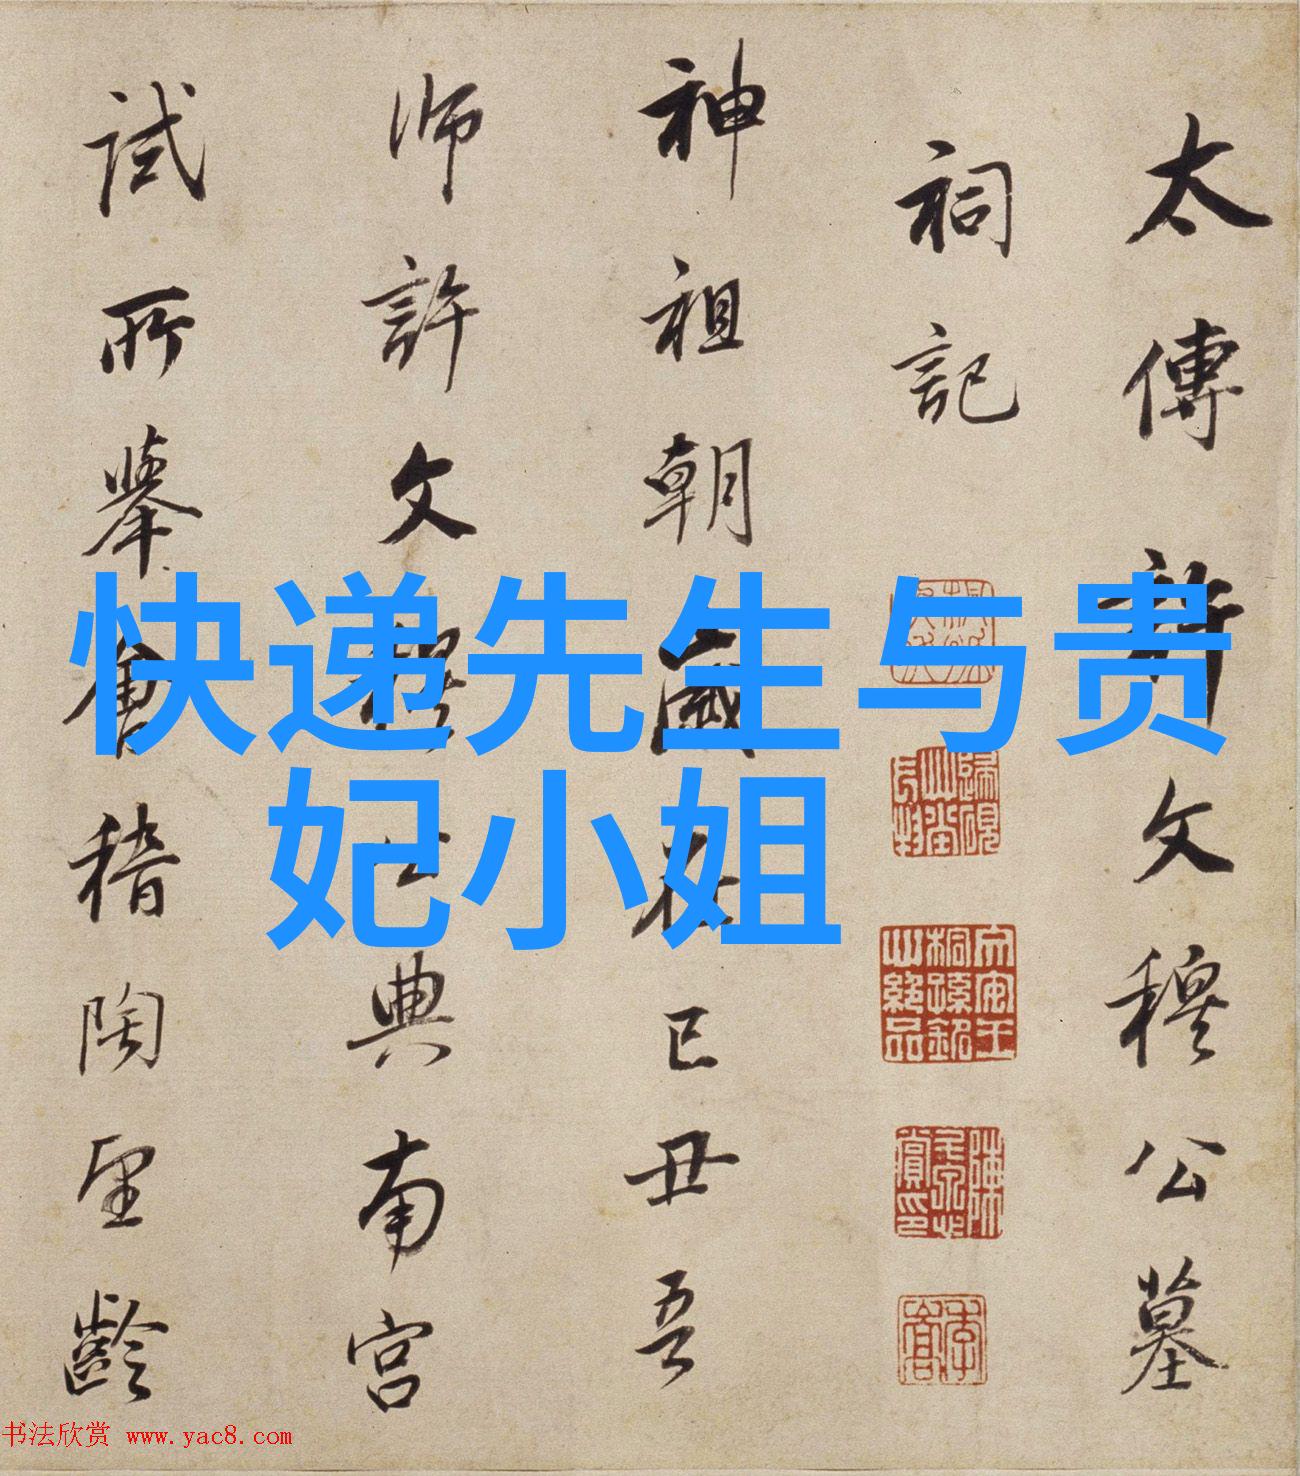 快递先生与贵
妃小姐
太傅許文穆公墓
祠記
神祖朝歲在己丑吾
師許文穆公典南宮
試所舉會稽陶望齡
书法欣赏 www.yac8.com